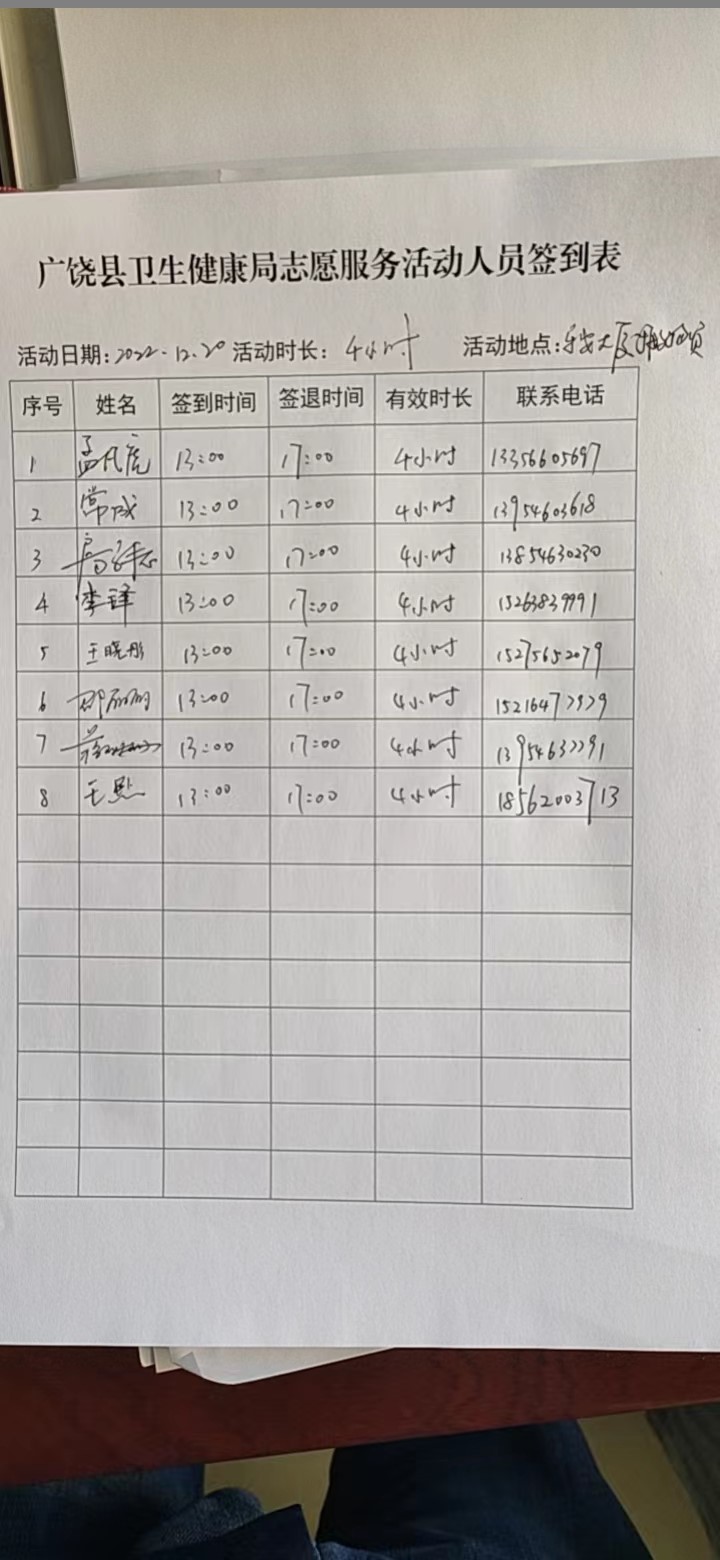 广饶县卫生健康局志愿服务活动人员签到表
活动日期:2022.12.20 活动时长: 4小时 活动地点:乐安大厦
序号 姓名 签到时间 签退时间 有效时长 联系电话
1 孟凡虎 13:00 17:00 4小时 13356605697
2 常成 13:00 17:00 4小时 13954603618
3 13:00 17:00 4小时 13854630230
4 李译 13:00 17:00 4小时 15263839991
5 王晓彤 13:00 17:00 4小时 15275652079
6 13:00 17:00 4小时
7 13:00 17:00 4小时
8 王 13:00 17:00 4小时 18562003713